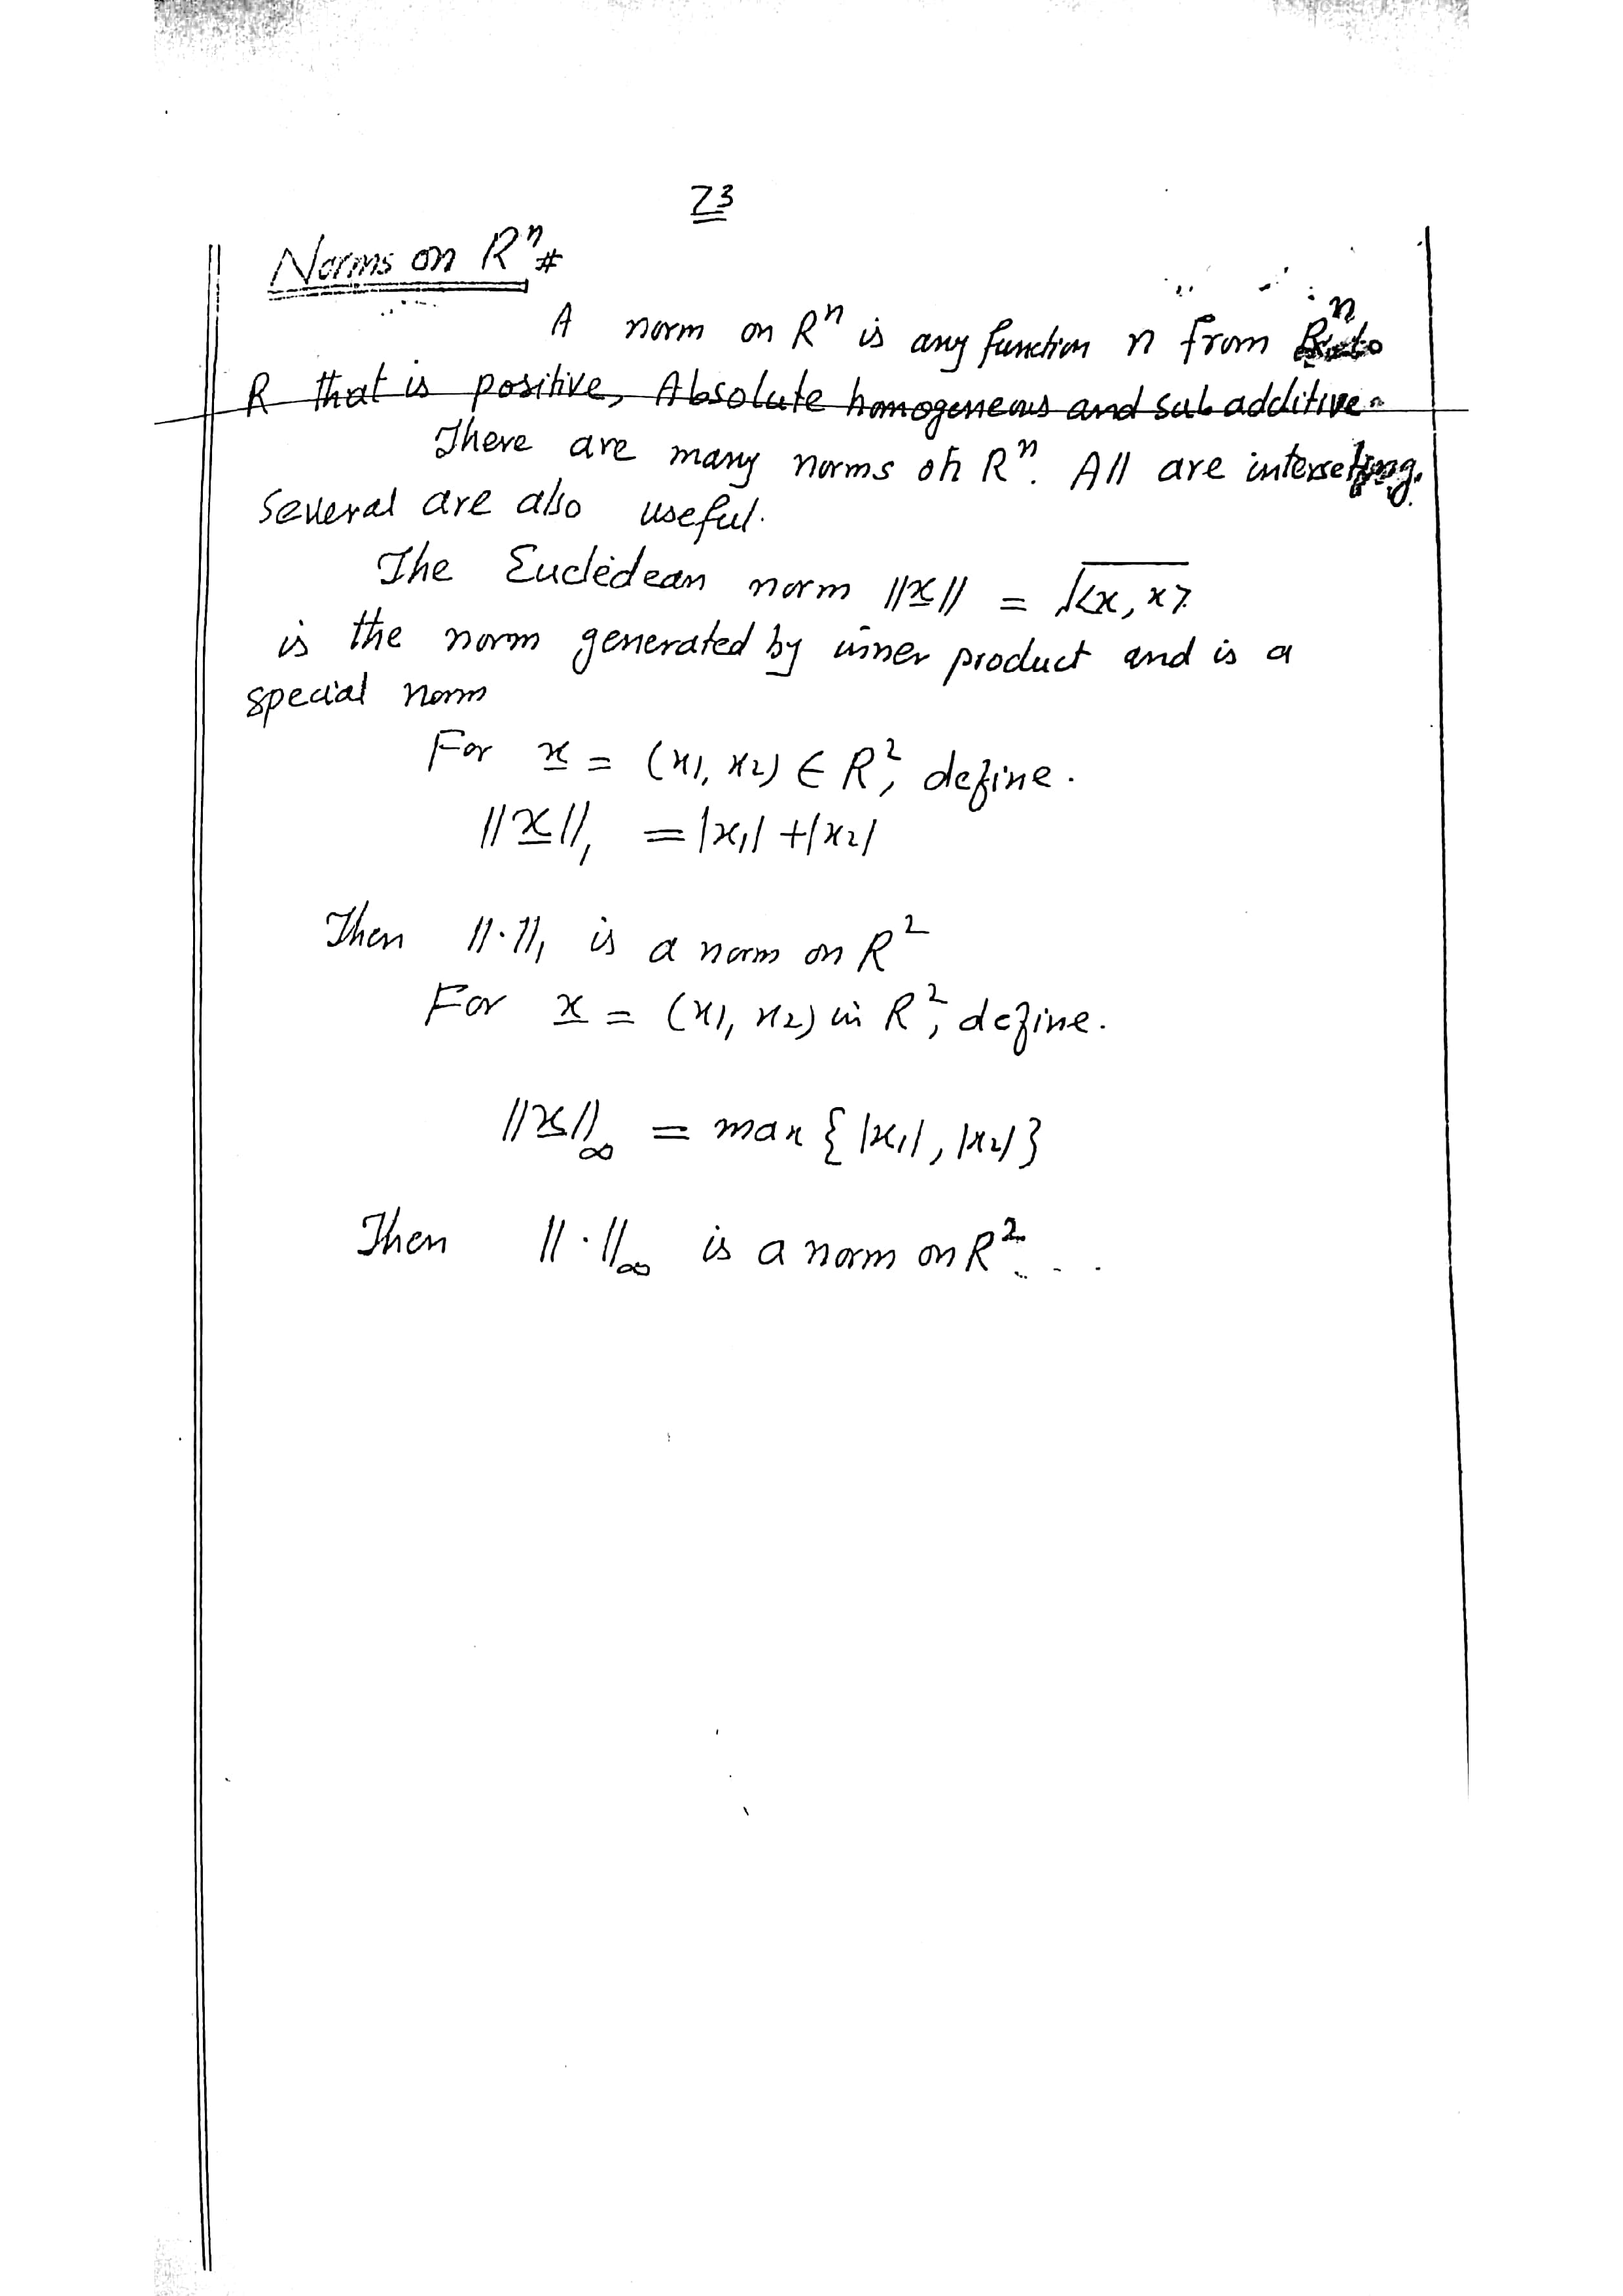 23
Norms on Rⁿ #
A norm on Rⁿ is any function n from Rⁿ to
R that is positive, Absolute homogeneous and sub additive.
There are many norms on Rⁿ. All are interseting.
Several are also useful.
The Eucledean norm ||x|| = √<x, x>
is the norm generated by inner product and is a
special norm
For x = (x₁, x₂) ∈ R², define.
||x||₁ = |x₁| + |x₂|
Then ||·||₁ is a norm on R²
For x = (x₁, x₂) in R², define.
||x||∞ = max { |x₁|, |x₂| }
Then ||·||∞ is a norm on R²